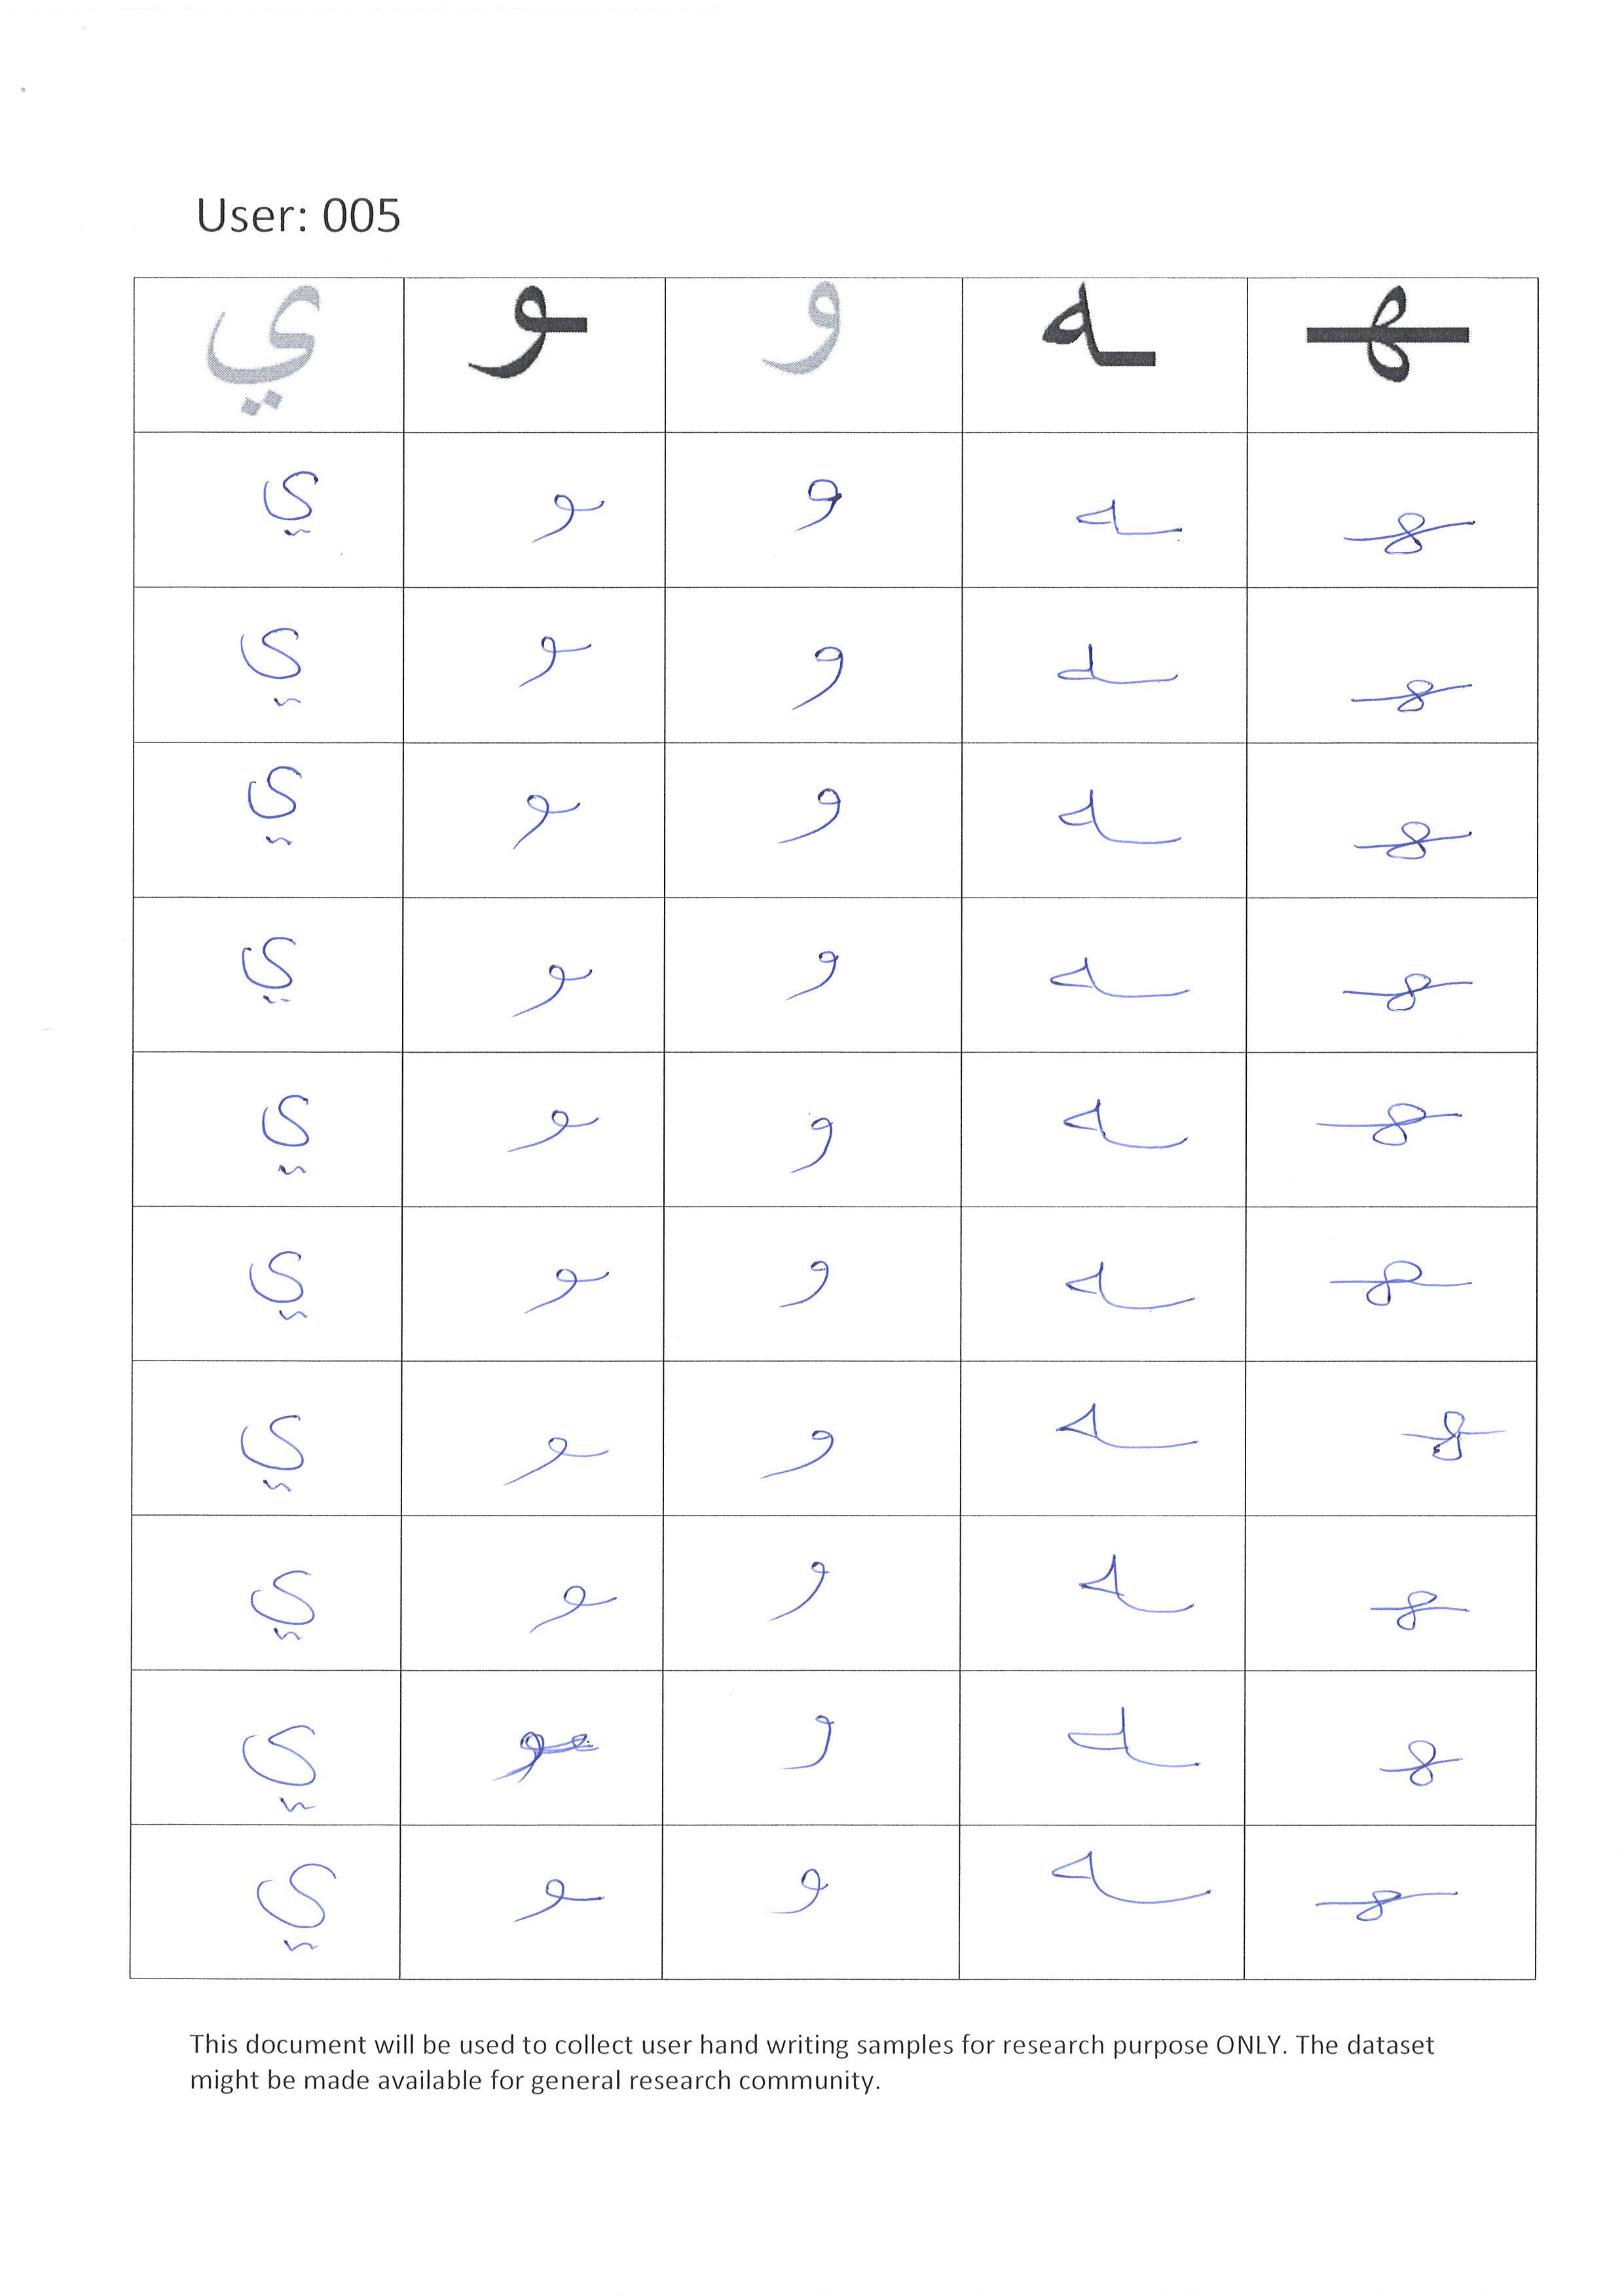 User: 005
ي ـو و ـه ـهـ
ي ـو و ـه ـهـ
ي ـو و ـه ـهـ
ي ـو و ـه ـهـ
ي ـو و ـه ـهـ
ي ـو و ـه ـهـ
ي ـو و ـه ـهـ
ي ـو و ـه ـهـ
ي ـو و ـه ـهـ
ي ـو و ـه ـهـ
ي ـو و ـه ـهـ
This document will be used to collect user hand writing samples for research purpose ONLY. The dataset
might be made available for general research community.